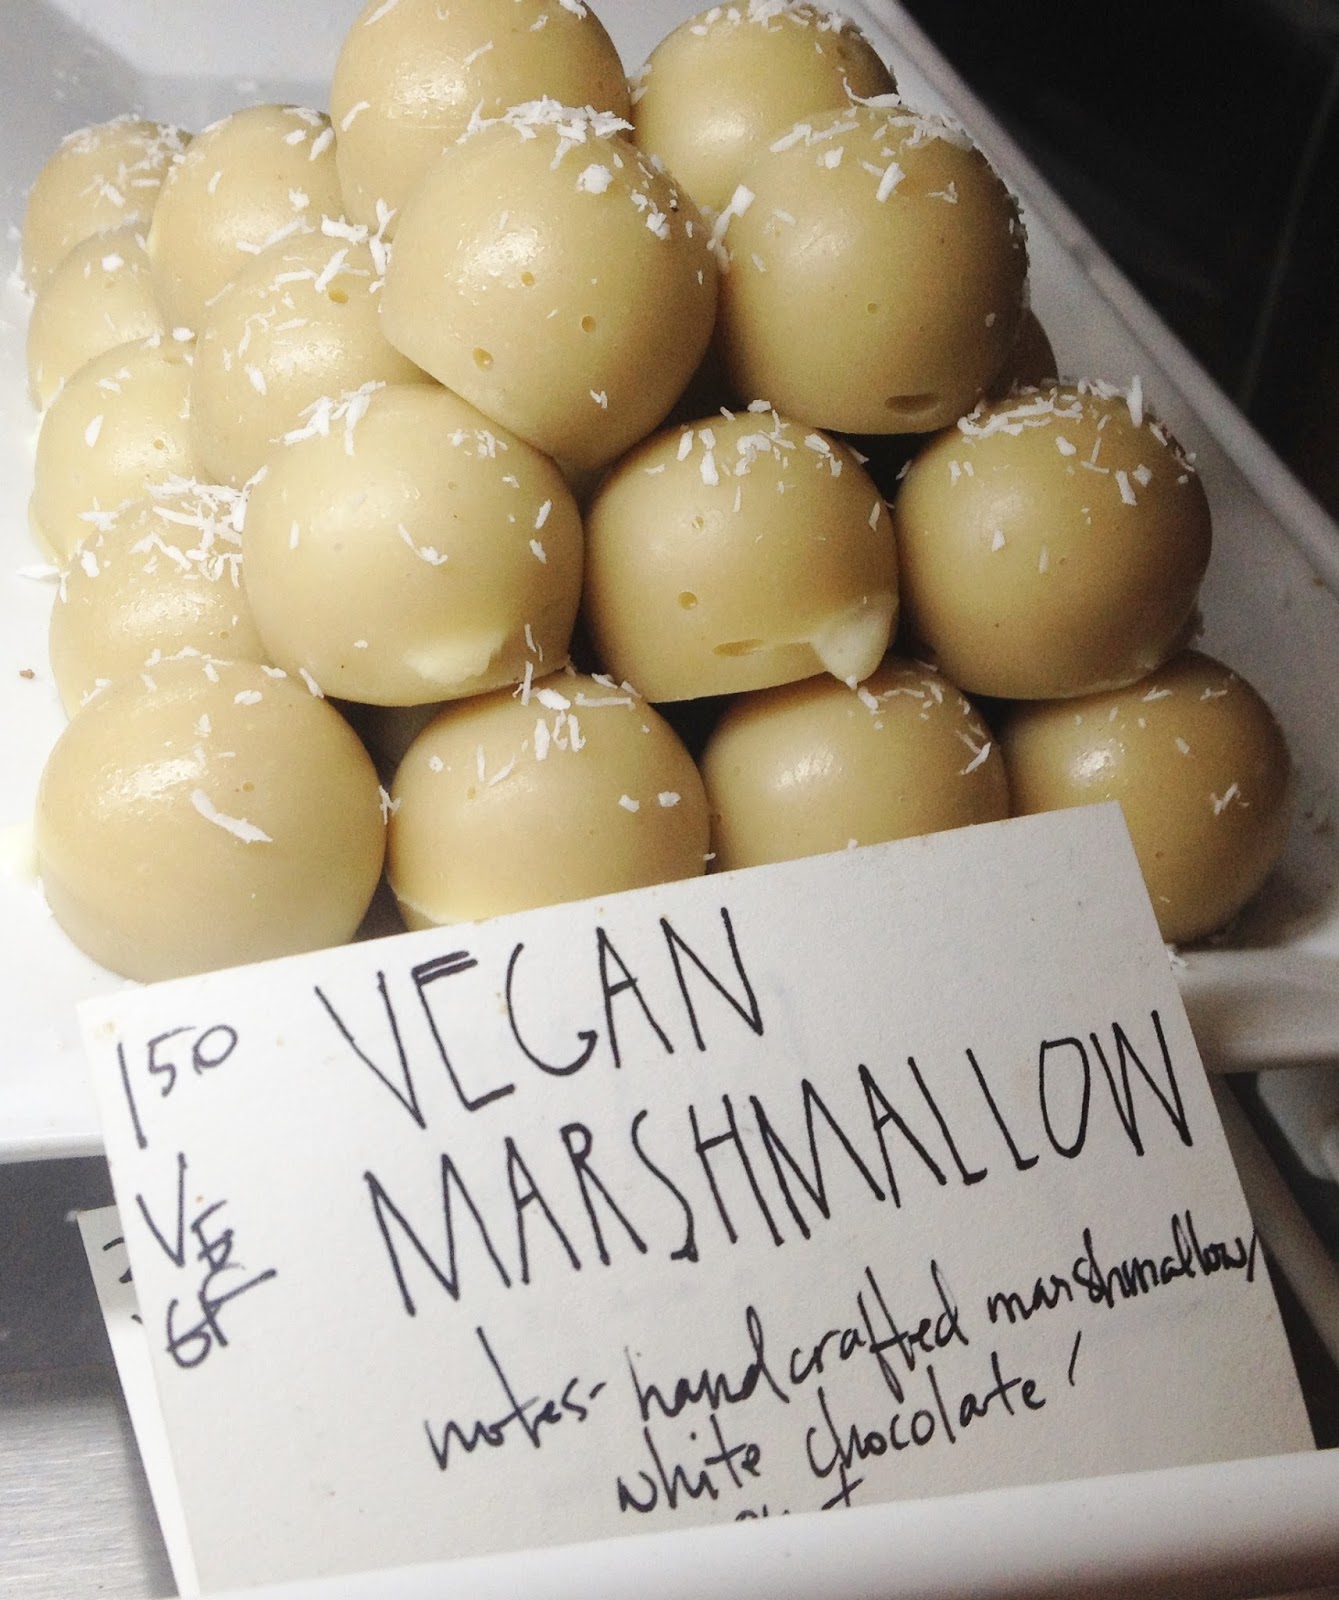 150
VE
GF
VEGAN
MARSHMALLOW
notes- handcrafted marshmallow,
white chocolate,